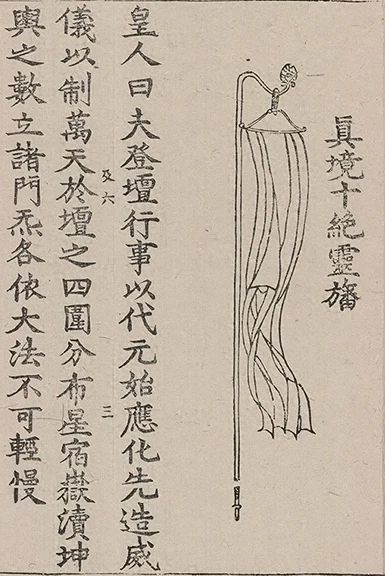 眞境十絶靈旛
皇人曰夫登壇行事以代元始應化先造威
儀以制萬天於壇之四圍分布星宿嶽瀆坤
及六
三
輿之數立諸門炁各依大法不可輕慢